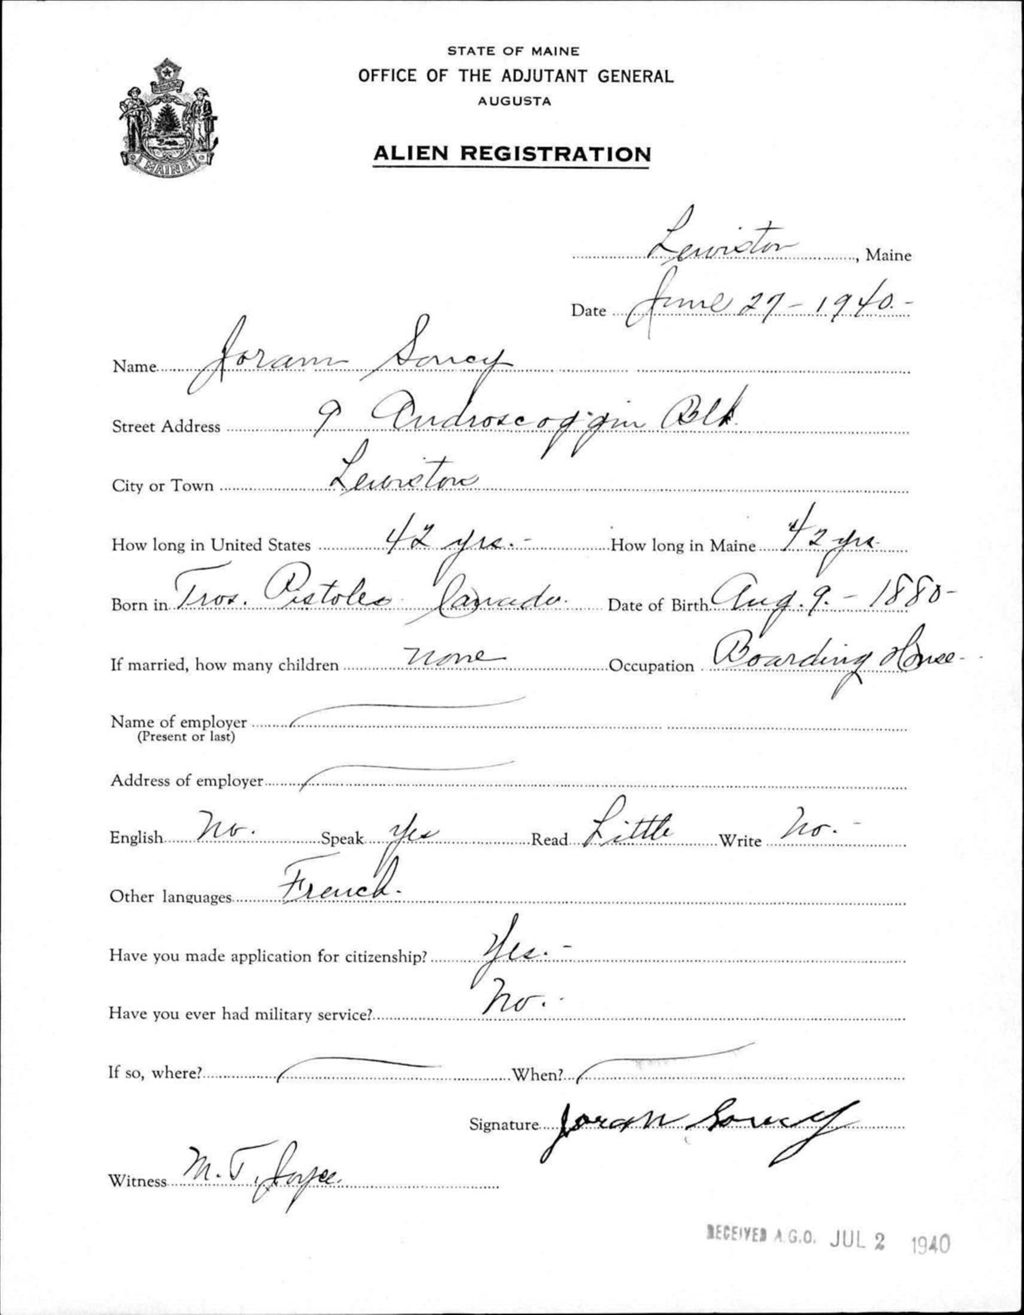 STATE OF MAINE
OFFICE OF THE ADJUTANT GENERAL
AUGUSTA
ALIEN REGISTRATION
MAINE
Lewiston, Maine
Date June 27 - 1940. -
Name Joram Soucy
Street Address 9 Androscoggin Blk.
City or Town Lewiston
How long in United States 42 yrs. - How long in Maine 42 yrs
Born in Tros. Pistoles Canada. Date of Birth Aug. 9. - 1880 -
If married, how many children none Occupation Boarding House -
Name of employer
(Present or last)
Address of employer
English No. Speak Yes Read Little Write No. -
Other languages French.
Have you made application for citizenship? Yes. -
Have you ever had military service? No. -
If so, where? When?
Signature Joram Soucy
Witness M. T. Joyce.
RECEIVED A.G.O. JUL 2 1940